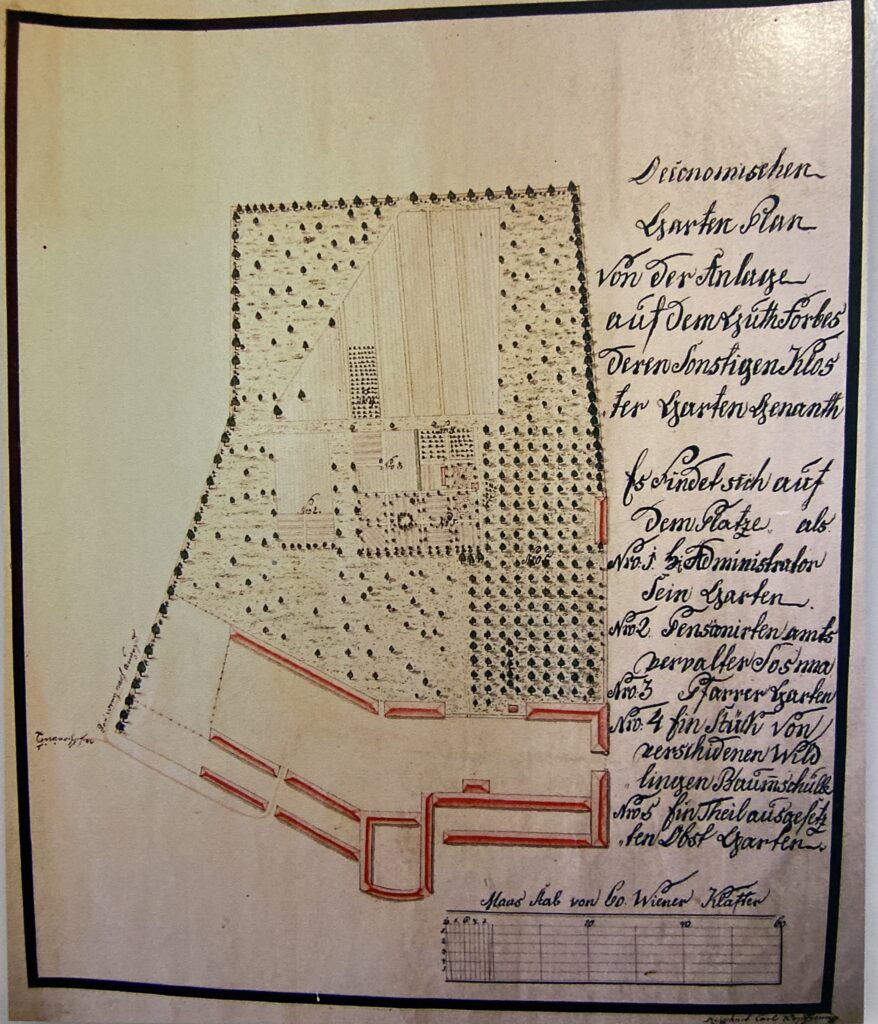 Oeconomischen
Garten Plan
von der Anlage
auf dem Guth Forbes
deren Sonstigen Klos
ter Garten Genanth
Es Findet sich auf
dem Platze als
Nro. 1. Administrator
Sein Garten.
Nro 2. Pensionirten amts
vervalter Sosnna
Nro. 3 Pfarrer Garten
Nro. 4 Ein Stück von
verschidenen Wild
lingen Baumschulle
Nro 5 Ein Theil ausgesetz
ten Obst Garten.
No 3
No 2
No 1
Maas Stab von 60. Wiener Klafter
20 40 60
Carl